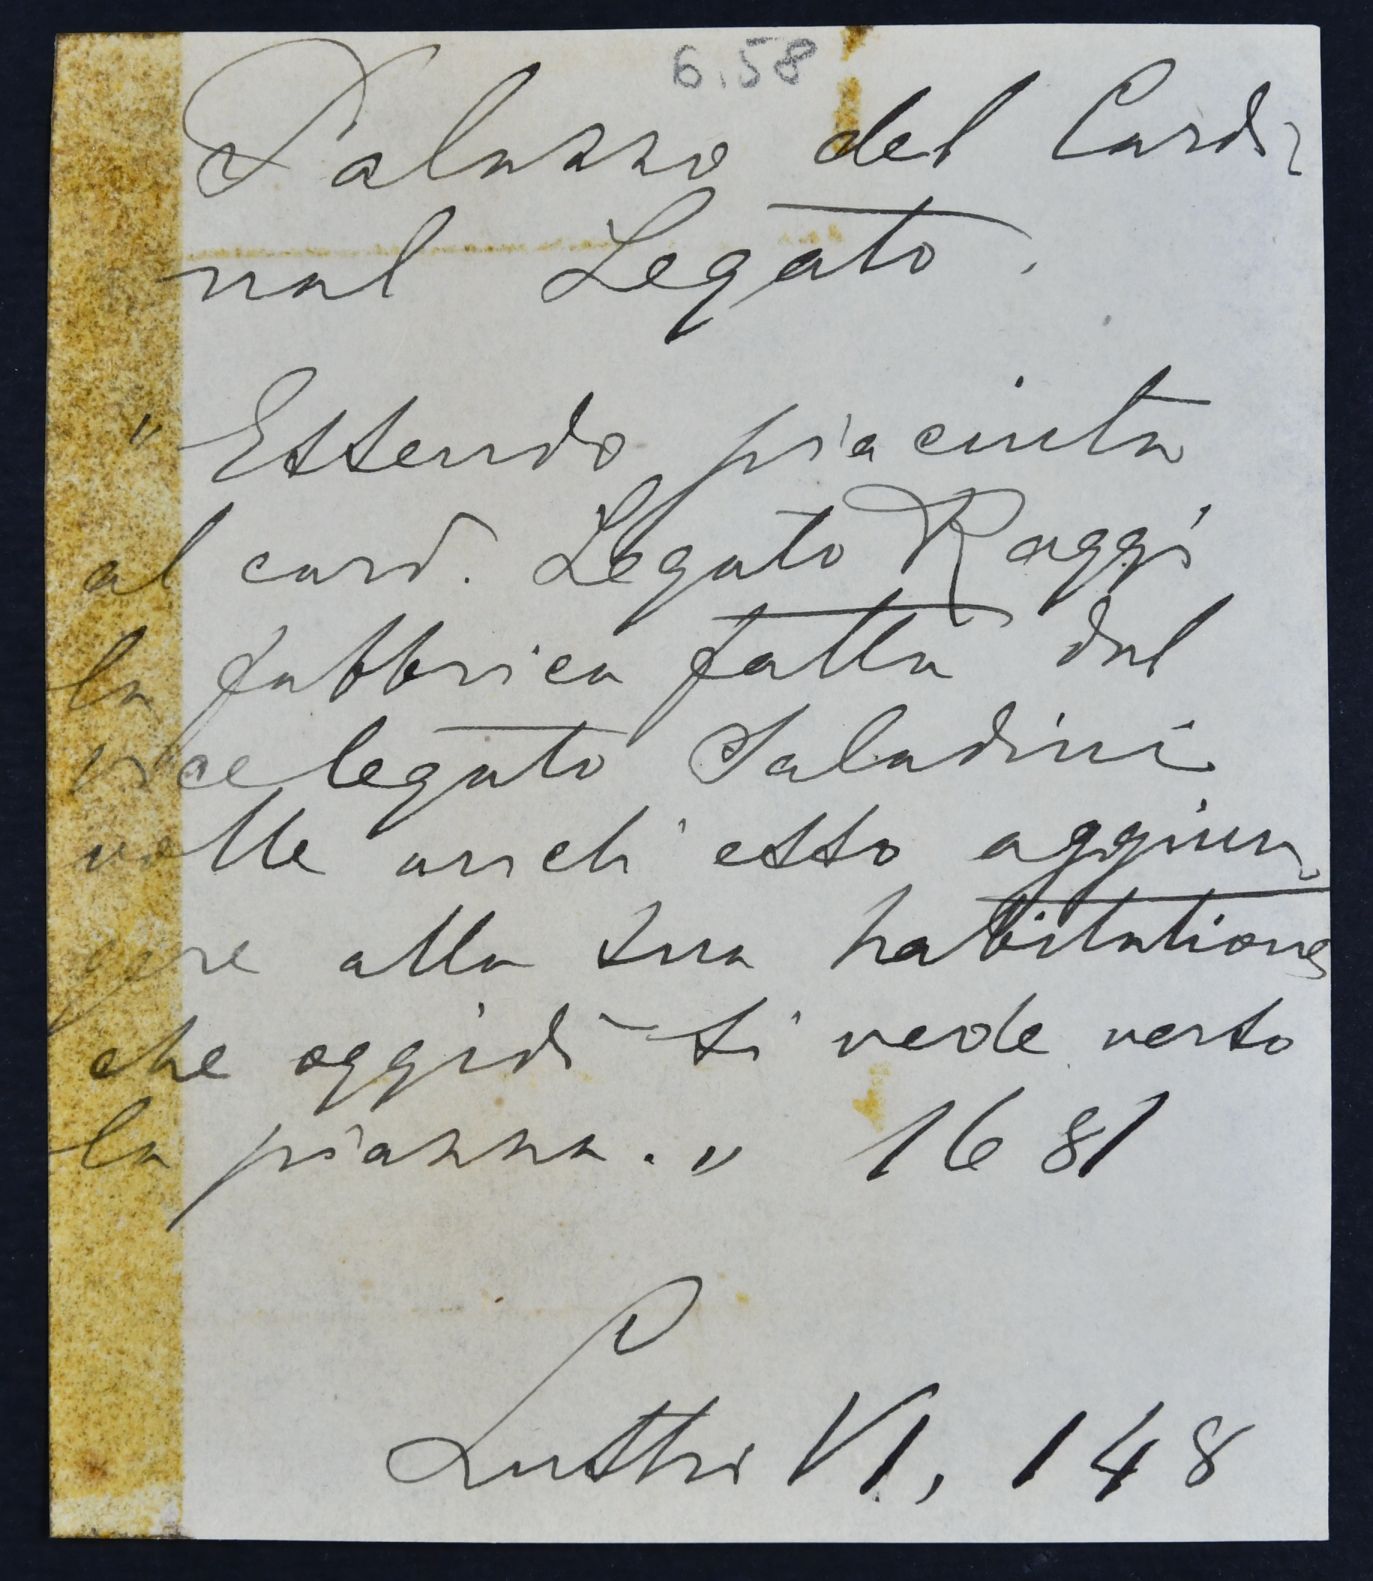 6.58
Palazzo del Cardi
nal Legato.
" Essendo piaciuta
al card. Legato Raggi
la fabbrica fatta dal
vicelegato Saladini
volle anch'esso aggiun
gere alla sua habitatione
che oggidì si vede verso
la piazza. " 1681
Lustri VI, 148